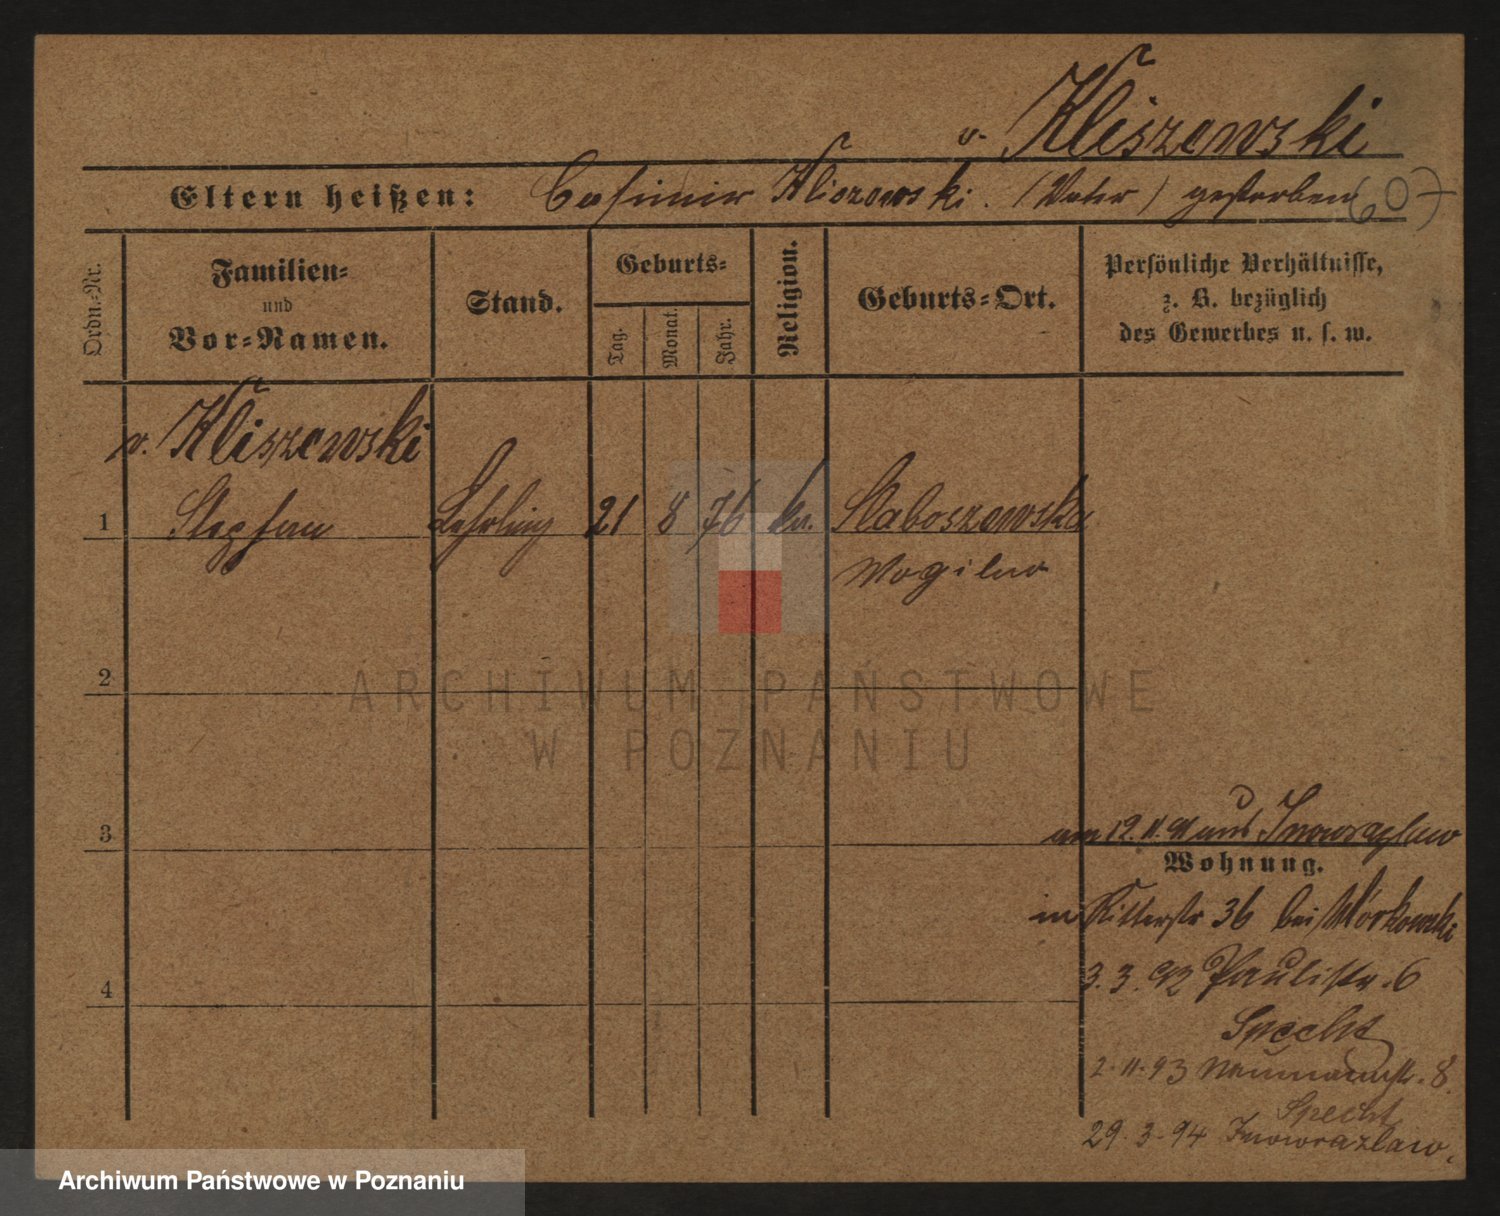 v. Kliszewski
Eltern heißen: Casimir Kliszewski. (Vater) gestorben 607
Ordn.-Nr.
Familien-
und
Vor-Namen.
Stand.
Geburts-
Tag.
Monat.
Jahr.
Religion.
Geburts-Ort.
Persönliche Verhältnisse,
z. B. bezüglich
des Gewerbes u. s. w.
v. Kliszewski
1 Stephan Lehrling 21 8 76 Slaboszewska
Mogilno
2
ARCHIWUM PAŃSTWOWE
W POZNANIU
am 12. 11. 91 aus Inowrazlaw
3
Wohnung.
in Ritterstr 36 bei
3. 3. 92 Paulistr. 6
4
Specht
2. 11. 93 Naumannstr. 8
Specht
29. 3. 94 Inowrazlaw.
Archiwum Państwowe w Poznaniu